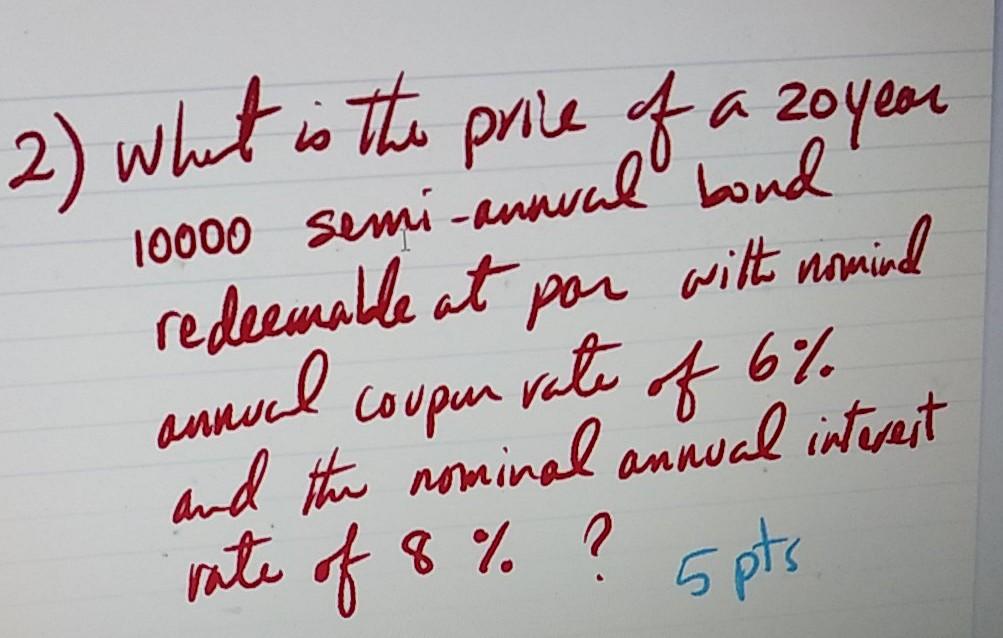 2) What is the price of a 20 year
10000 semi-annual bond
redeemable at par with nominal
annual coupon rate of 6%
and the nominal annual interest
rate of 8% ? 5 pts